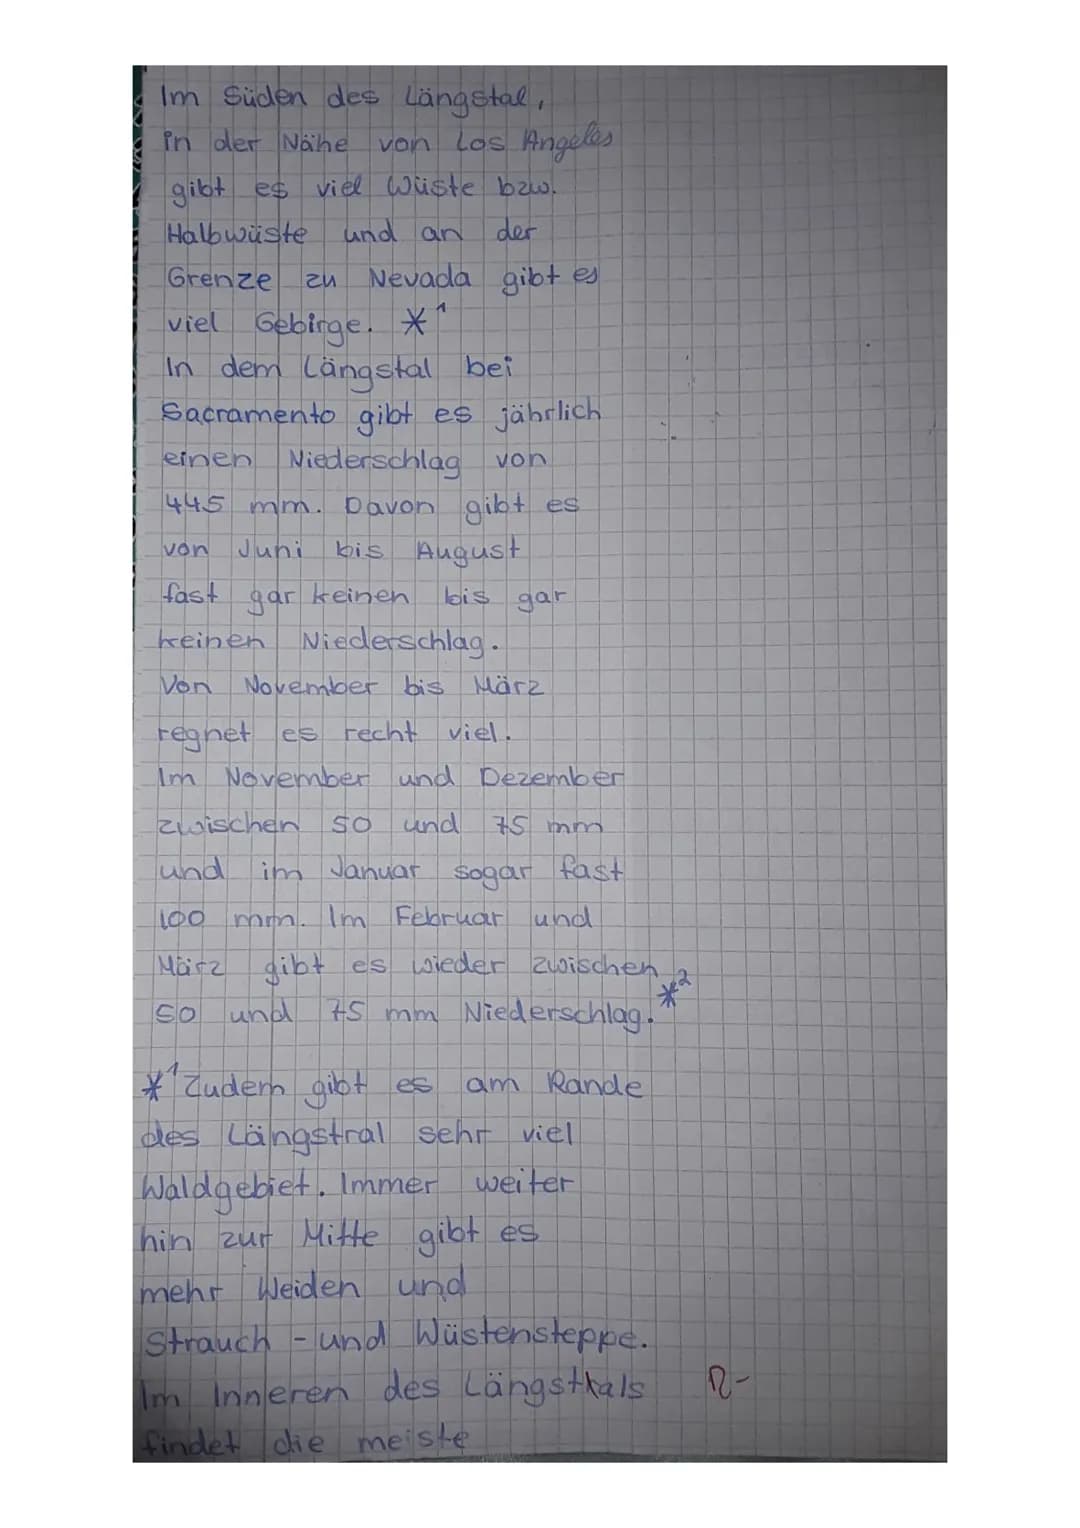 Im Süden des Längstal,
in der Nähe von Los Angeles
gibt es viel Wüste bzw.
Halbwüste und an der
Grenze zu Nevada gibt es
viel Gebirge. *1
In dem Längstal bei
Sacramento gibt es jährlich
einen Niederschlag von
445 mm. Davon gibt es
von Juni bis August
fast gar keinen bis gar
keinen Niederschlag.
Von November bis März
regnet es recht viel.
Im November und Dezember
zwischen 50 und 75 mm
und im Januar sogar fast
100 mm. Im Februar und
März gibt es wieder zwischen
50 und 75 mm Niederschlag. *2
*1 Zudem gibt es am Rande
des Längstral sehr viel
Waldgebiet. Immer weiter
hin zur Mitte gibt es
mehr Weiden und
Strauch - und Wüstensteppe.
Im Inneren des Längsthals
findet die meiste